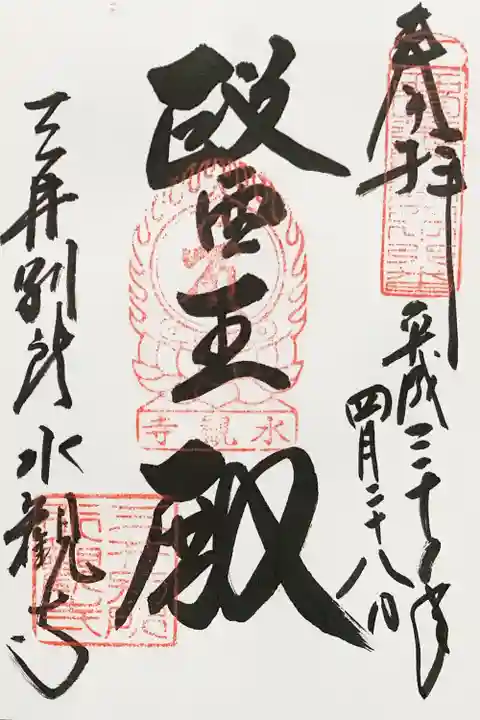 奉拝
平成三十一年
四月二十八日
醫王殿
水觀寺
三井別所 水觀寺